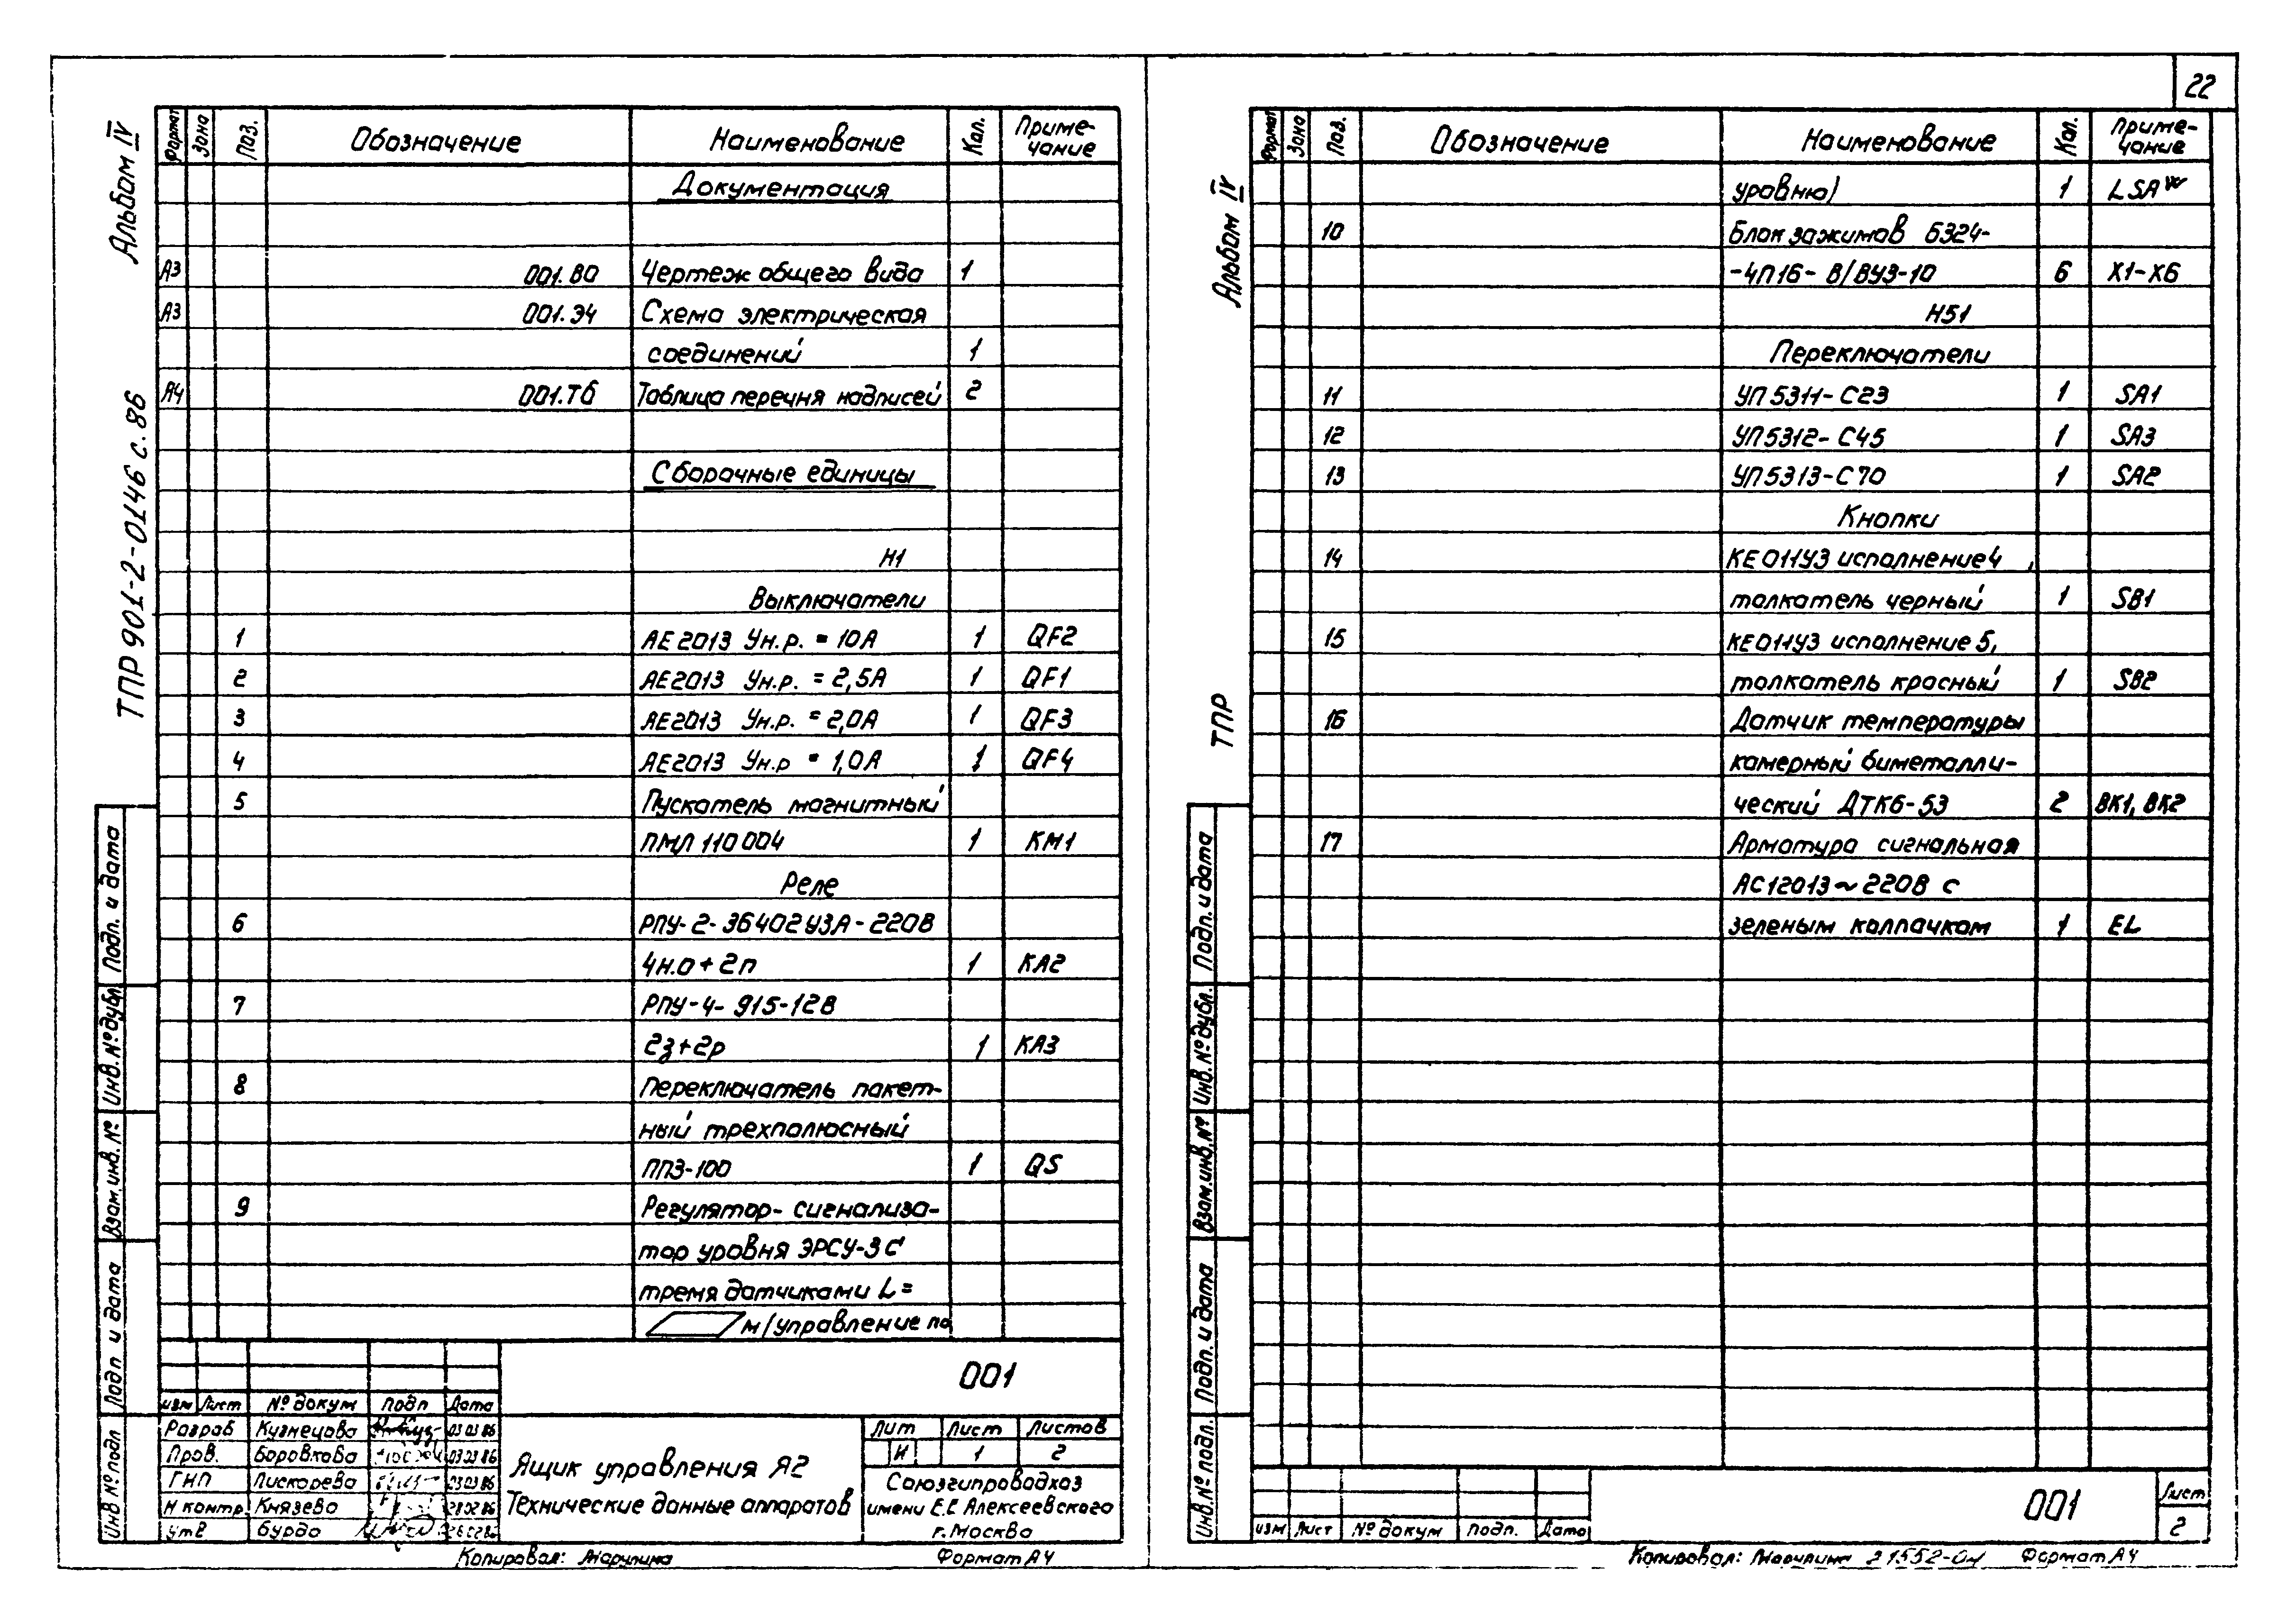 22
Альбом IV
ТПР 901-2-0146 с. 86
Формат Зона Поз. Обозначение Наименование Кол. Приме-
чание
Документация
А3 001.ВО Чертеж общего вида 1
А3 001.Э4 Схема электрическая
соединений 1
А4 001.Т6 Таблица перечня надписей 2
Сборочные единицы
Н1
Выключатели
1 АЕ2013 Ун.р. = 10А 1 QF2
2 АЕ2013 Ун.р. = 2,5А 1 QF1
3 АЕ2013 Ун.р. = 2,0А 1 QF3
4 АЕ2013 Ун.р = 1,0А 1 QF4
5 Пускатель магнитный
ПМЛ 110004 1 КМ1
Реле
6 РПУ-2-36402У3А-220В
4н.о+2п 1 КА2
7 РПУ-4-915-12В
2з+2р 1 КА3
8 Переключатель пакет-
ный трехполюсный
ПП3-100 1 QS
9 Регулятор-сигнализа-
тор уровня ЭРСУ-3 С
тремя датчиками L=
м/управление по
Подп. и дата
Инв. № дубл.
Взам. инв. №
Подп и дата
Инв № подл
001
изм Лист № докум подп Дата
Разраб Кузнецова 03 03 86
Пров. Боровкова 03 03 86
ГИП Пискорева 03 03 86
Н контр. Князева 28 02 86
Утв Бурдо
Ящик управления Я2
Технические данные аппаратов
Лит Лист Листов
И 1 2
Союзгипроводхоз
имени Е.Е Алексеевского
г. Москва
Копировал: Марулина Формат А4
Альбом IV
ТПР
Формат Зона Поз. Обозначение Наименование Кол. Приме-
чание
уровню) 1 LSAW
10 Блок зажимов Б324-
-4П16-В/ВУ3-10 6 Х1-Х6
Н51
Переключатели
11 УП5311-С23 1 SA1
12 УП5312-С45 1 SA3
13 УП5313-С70 1 SA2
Кнопки
14 КЕ011У3 исполнение 4,
толкатель черный 1 SB1
15 КЕ011У3 исполнение 5,
толкатель красный 1 SB2
16 Датчик температуры
камерный биметалли-
ческий ДТКБ-53 2 ВК1, ВК2
17 Арматура сигнальная
АС12013~220В с
зеленым колпачком 1 EL
Подп. и дата
Инв. № дубл.
Взам. инв. №
Подп. и дата
Инв. № подл.
001
Лист
2
изм Лист № докум подп. Дата
Копировал: Марулина 21552-04 Формат А4